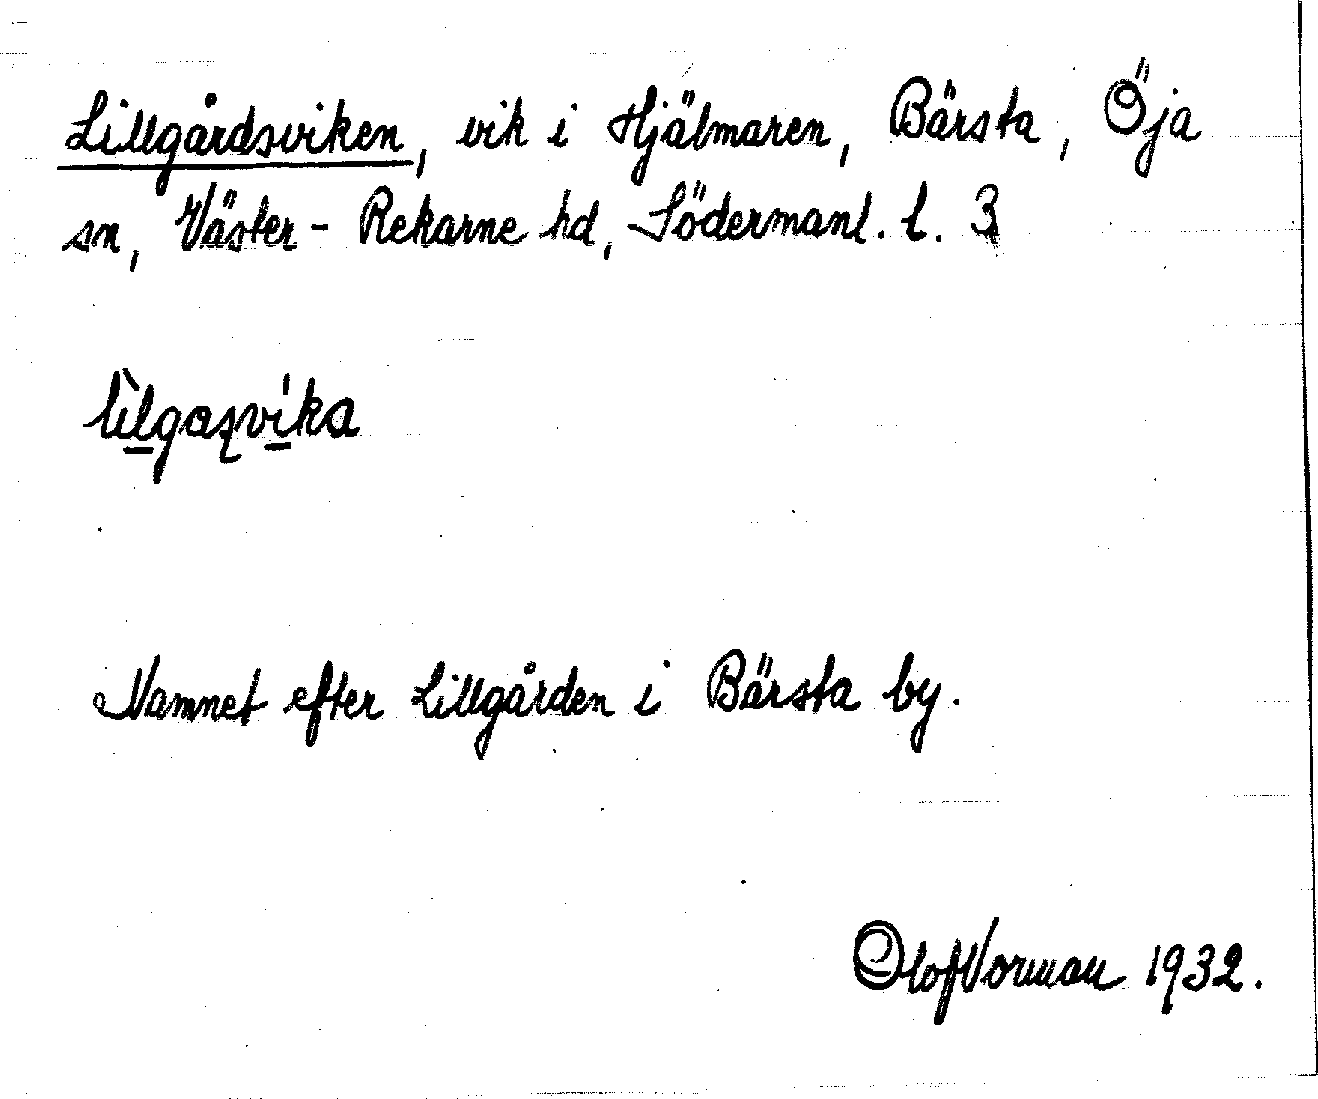 Lillgårdsviken, vik i Hjälmaren, Bärsta, Öja
sn, Väster-Rekarne hd, Södermanl. l. 3
lìlgaʂvíka
Namnet efter Lillgården i Bärsta by.
Olof Norman 1932.